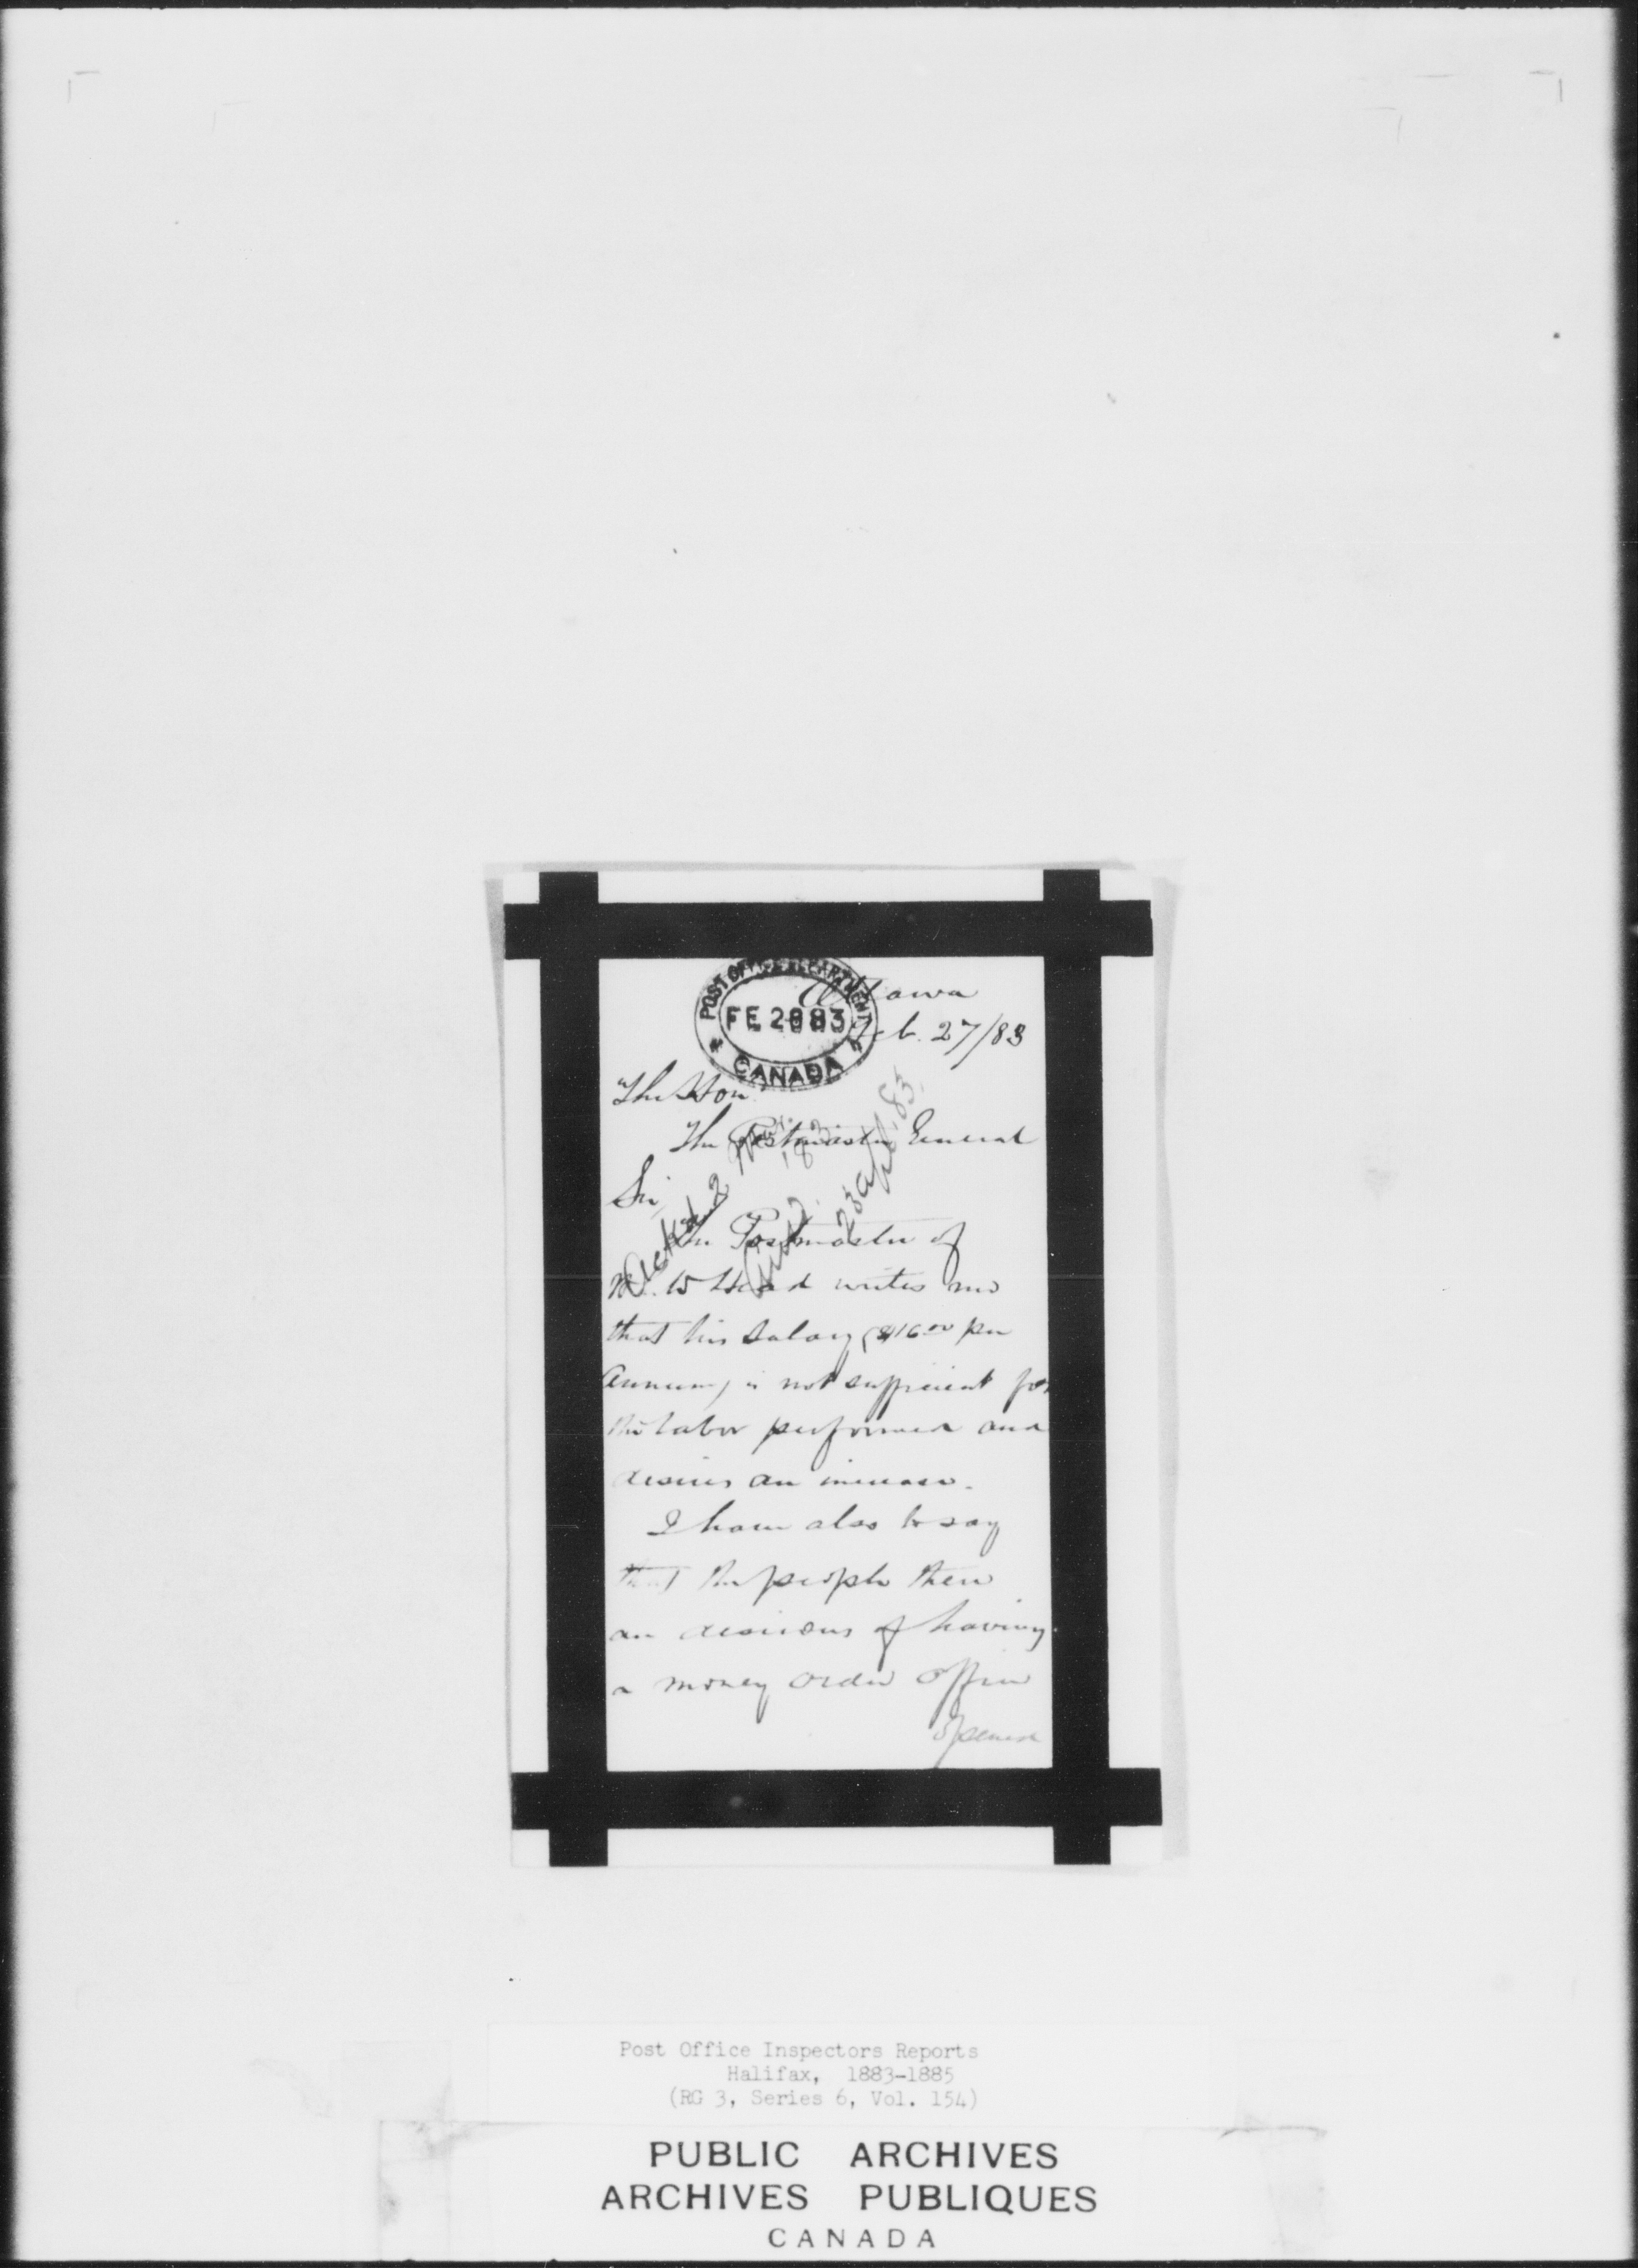 POST OFFICE DEPARTMENT
FE 28 83
CANADA
Ottawa
Feb. 27/83
The Hon
The Postmaster General
Sir,
Ackd. 2
23 April 83
The Postmaster of
Head writes me
that his salary ($16.00 per
annum) is not sufficient for
the labor performed and
desires an increase.
I have also to say
that the people there
are desirous of having
a money order office
opened
Post Office Inspectors Reports
Halifax, 1883-1885
(RG 3, Series 6, Vol. 154)
PUBLIC ARCHIVES
ARCHIVES PUBLIQUES
CANADA